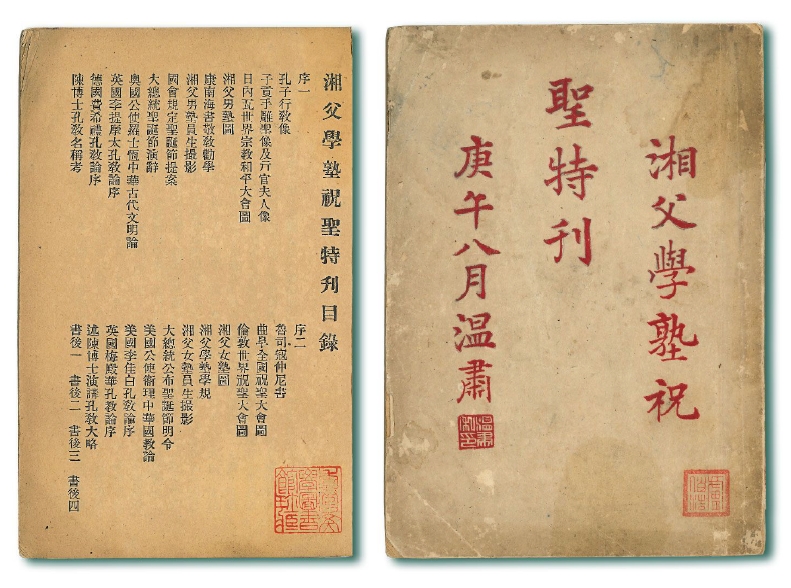 湘父學塾祝
聖特刊
庚午八月溫肅
湘父學塾祝聖特刊目錄
序一
孔子行敎像
子貢手雕聖像及亓官夫人像
日內瓦世界宗敎和平大會圖
湘父男塾圖
康南海書敬敎勸學
湘父男塾員生撮影
國會規定聖誕節提案
大總統聖誕節演辭
奧國公使羅士恆中華古代文明論
英國李提摩太孔敎論序
德國費希禮孔敎論序
陳博士孔敎名稱考
序二
魯司寇仲尼書
曲阜全國祝聖大會圖
倫敦世界祝聖大會圖
湘父女塾圖
湘父學塾學規
湘父女塾員生撮影
大總統公布聖誕節明令
美國公使衛理中華國敎論
美國李佳白孔敎論序
英國梅殿華孔敎論序
述陳博士演講孔敎大略
書後一 書後二 書後三 書後四